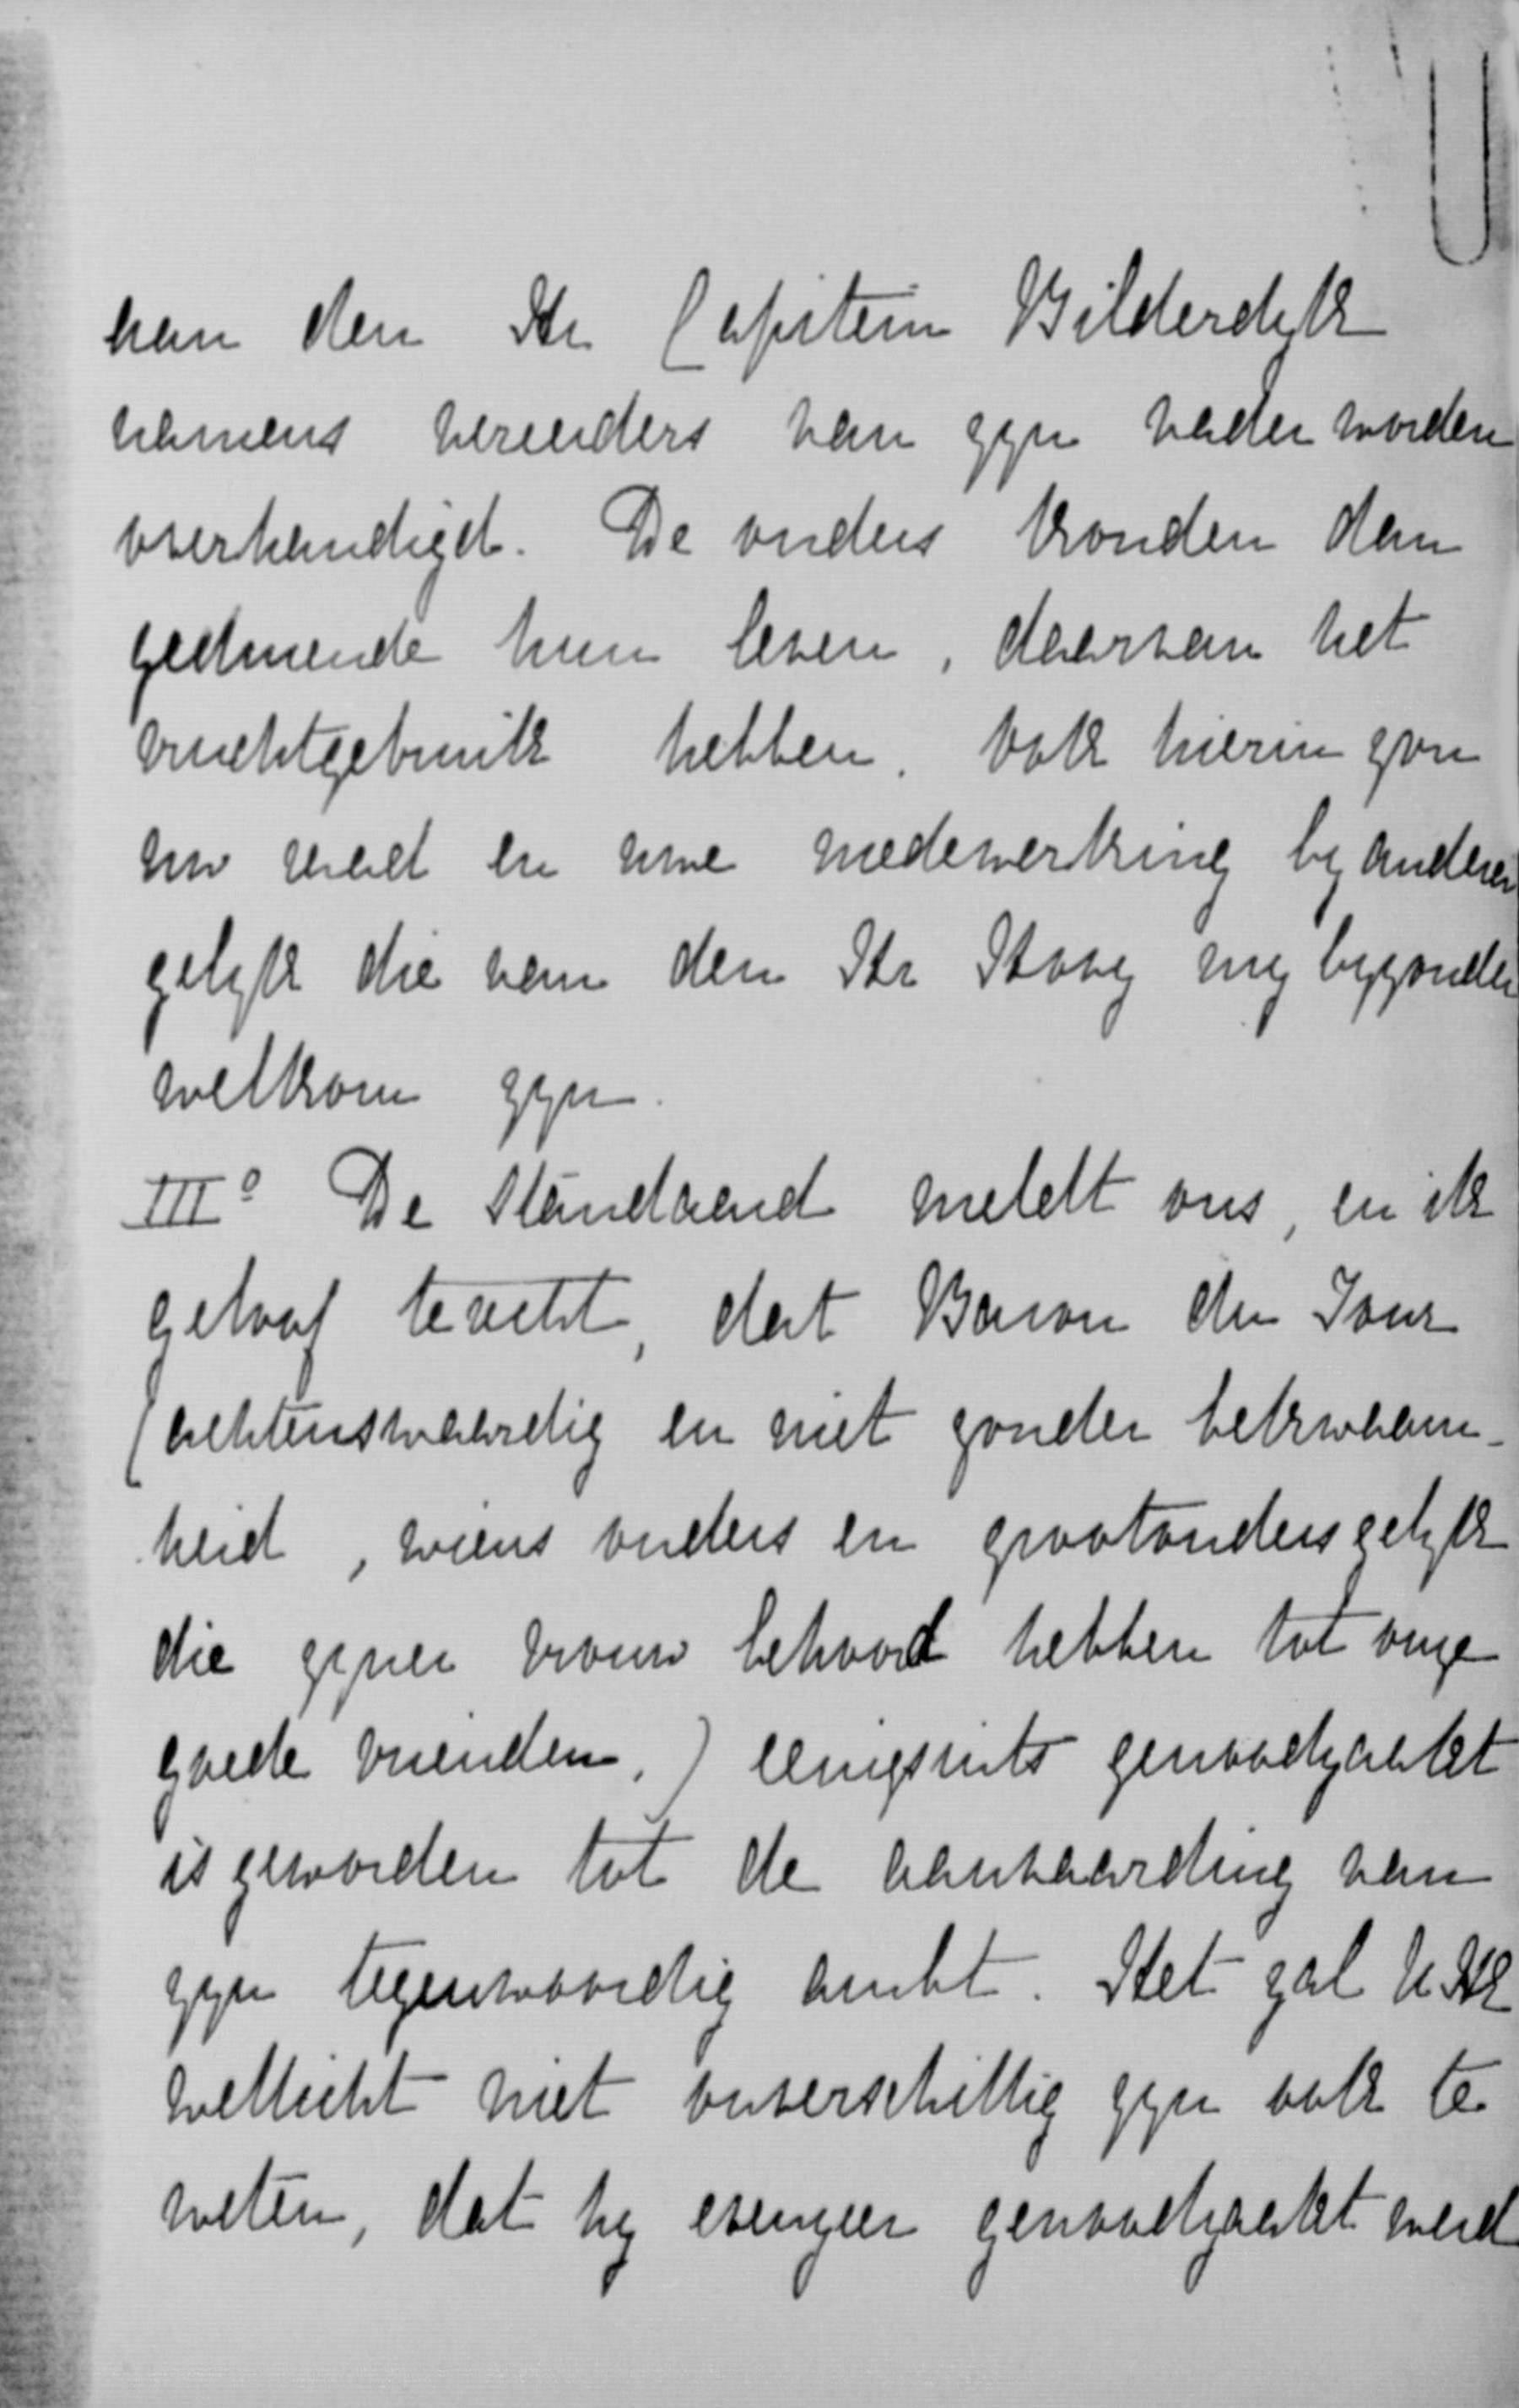 van den Hr Capitein Bilderdyk
namens vereerders van zyn vader worden
overhandigd. De ouders konden dan
gedurende hun leven, daarvan het
vruchtgebruik hebben. Ook hierin zou
uw raad en uwe medewerking by anderen
gelyk die van den Hr Hoog my byzonder
welkom zyn.
III° De Standaard meldt ons, en ik
geloof terecht, dat Baron du Tour
(achtenswaardig en niet zonder bekwaam-
heid, wiens ouders en grootouders gelyk
die zyner vrouw behoord hebben tot onze
goede vrienden,) eenigsints genoodzaakt
is geworden tot de aanvaarding van
zyn tegenwoordig ambt. Het zal U HE
wellicht niet onverschillig zyn ook te
weten, dat hy evenzeer genoodzaakt werd